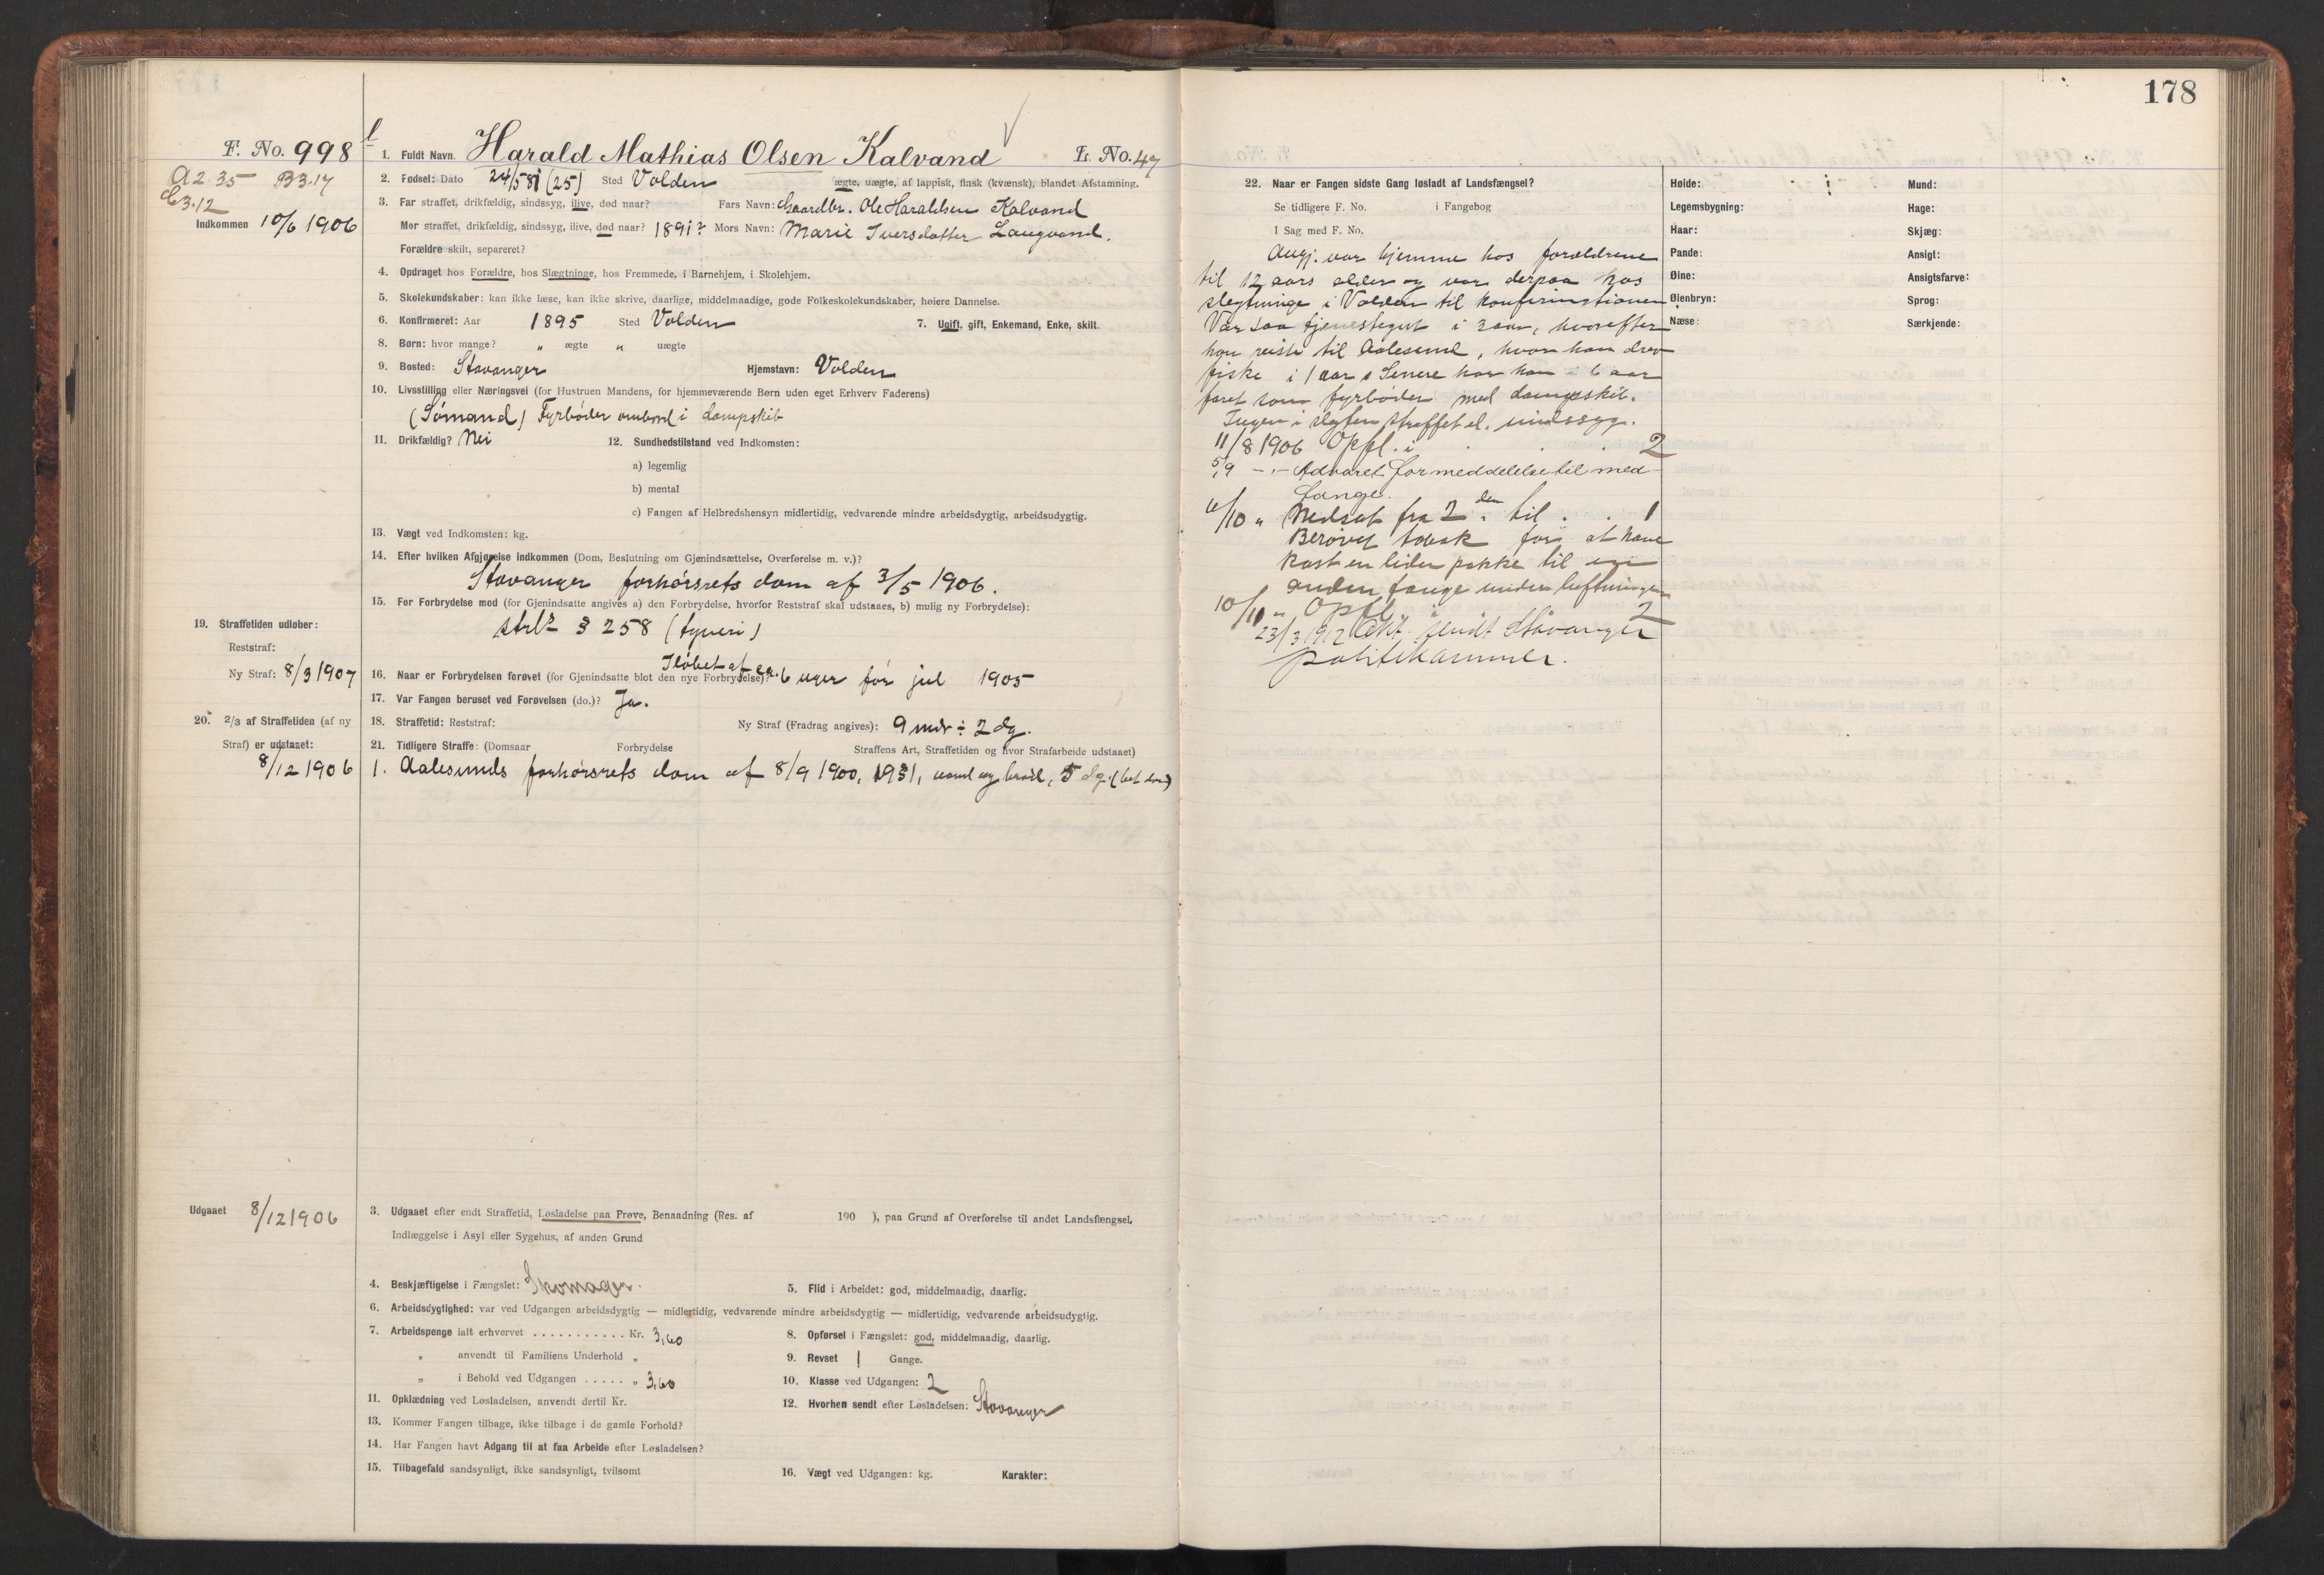 178
F. No. 998
A2.35 B3.17
C3.12
Indkommen 10/6 1906
1. Fuldt Navn. Harald Mathias Olsen Kalvand L. No. 47
2. Fødsel: Dato 24/5 81 (25) Sted Volden ægte, uægte, af lappisk, finsk (kvænsk), blandet Afstamning.
3. Far straffet, drikfældig, sindssyg, ilive, død naar? Fars Navn: Gaardbr. Ole Haraldsen Kalvand
Mor straffet, drikfældig, sindssyg, ilive, død naar? 1891? Mors Navn: Marie Iversdatter Langvand.
Forældre skilt, separeret?
4. Opdraget hos Forældre, hos Slægtninge, hos Fremmede, i Barnehjem, i Skolehjem.
5. Skolekundskaber: kan ikke læse, kan ikke skrive, daarlige, middelmaadige, gode Folkeskolekundskaber, høiere Dannelse.
6. Konfirmeret: Aar 1895 Sted Volden 7. Ugift, gift, Enkemand, Enke, skilt.
8. Børn: hvor mange? " ægte " uægte
9. Bosted: Stavanger Hjemstavn: Volden
10. Livsstilling eller Næringsvei (for Hustruen Mandens, for hjemmeværende Børn uden eget Erhverv Faderens)
(Sömand) Fyrböder ombord i dampskib
11. Drikfældig? Nei 12. Sundhedstilstand ved Indkomsten:
a) legemlig
b) mental
c) Fangen af Helbredshensyn midlertidig, vedvarende mindre arbeidsdygtig, arbeidsudygtig.
13. Vægt ved Indkomsten: kg.
14. Efter hvilken Afgjørelse indkommen (Dom, Beslutning om Gjenindsættelse, Overførelse m. v.)?
Stavanger forhörsrets dom af 3/5 1906.
15. For Forbrydelse mod (for Gjenindsatte angives a) den Forbrydelse, hvorfor Reststraf skal udstaaes, b) mulig ny Forbrydelse):
§ 258 (tyveri)
19. Straffetiden udløber:
Reststraf:
Ny Straf: 8/3 1907
Iløbet af ca.
16. Naar er Forbrydelsen forøvet (for Gjenindsatte blot den nye Forbrydelse)? 6 uger för jul 1905
17. Var Fangen beruset ved Forøvelsen (do.)? Ja.
20. 2/3 af Straffetiden (af ny
Straf) er udstaaet:
8/12 1906
18. Straffetid: Reststraf: Ny Straf (Fradrag angives): 9 mdr ÷ 2 dg.
21. Tidligere Straffe: (Domsaar Forbrydelse Straffens Art, Straffetiden og hvor Strafarbeide udstaaet)
1. Aalesunds forhörsrets dom af 8/9 1900, vand og bröd, 5 dg.
Udgaaet 8/12 1906
3. Udgaaet efter endt Straffetid, Løsladelse paa Prøve, Benaadning (Res. af 190 ), paa Grund af Overførelse til andet Landsfængsel,
Indlæggelse i Asyl eller Sygehus, af anden Grund
4. Beskjæftigelse i Fængslet: Skomager. 5. Flid i Arbeidet: god, middelmaadig, daarlig.
6. Arbeidsdygtighed: var ved Udgangen arbeidsdygtig — midlertidig, vedvarende mindre arbeidsdygtig — midlertidig, vedvarende arbeidsudygtig.
7. Arbeidspenge ialt erhvervet . . . . . . . . . . . Kr. 3,60 8. Opførsel i Fængslet: god, middelmaadig, daarlig.
" anvendt til Familiens Underhold " 9. Revset 1 Gange.
" i Behold ved Udgangen . . . . . " 3,60 10. Klasse ved Udgangen: 2
11. Opklædning ved Løsladelsen, anvendt dertil Kr. 12. Hvorhen sendt efter Løsladelsen: Stavanger
13. Kommer Fangen tilbage, ikke tilbage i de gamle Forhold?
14. Har Fangen havt Adgang til at faa Arbeide efter Løsladelsen?
15. Tilbagefald sandsynligt, ikke sandsynligt, tvilsomt 16. Vægt ved Udgangen: kg. Karakter:
22. Naar er Fangen sidste Gang løsladt af Landsfængsel?
Se tidligere F. No. i Fangebog
I Sag med F. No.
Angj. var hjemme hos forældrene
til 12 aars alder og var derpaa hos
slegtninge i Volden til konfirmationen
Var saa tjenestegut i 3 aar, hvorefter
han reiste til Aalesund, hvor han drev
fiske i 1 aar. Senere har han i 6 aar
faret som fyrböder med dampskib.
Ingen i slegten straffet el. sindssyg.
11/8 1906 Oppl. i . . . 2
5/9 -"- Advaret for meddelelse til med-
fange.
6/10 " Nedsat fra 2den til . . 1
Berövet tobak for at have
kast en liden pakke til en
anden fange under luftningen
10/11 " Oppl. i 2
23/3 1912 Akt. sendt Stavanger
politikammer.
Høide: Mund:
Legemsbygning: Hage:
Haar: Skjæg:
Pande: Ansigt:
Øine: Ansigtsfarve:
Øienbryn: Sprog:
Næse: Særkjende: